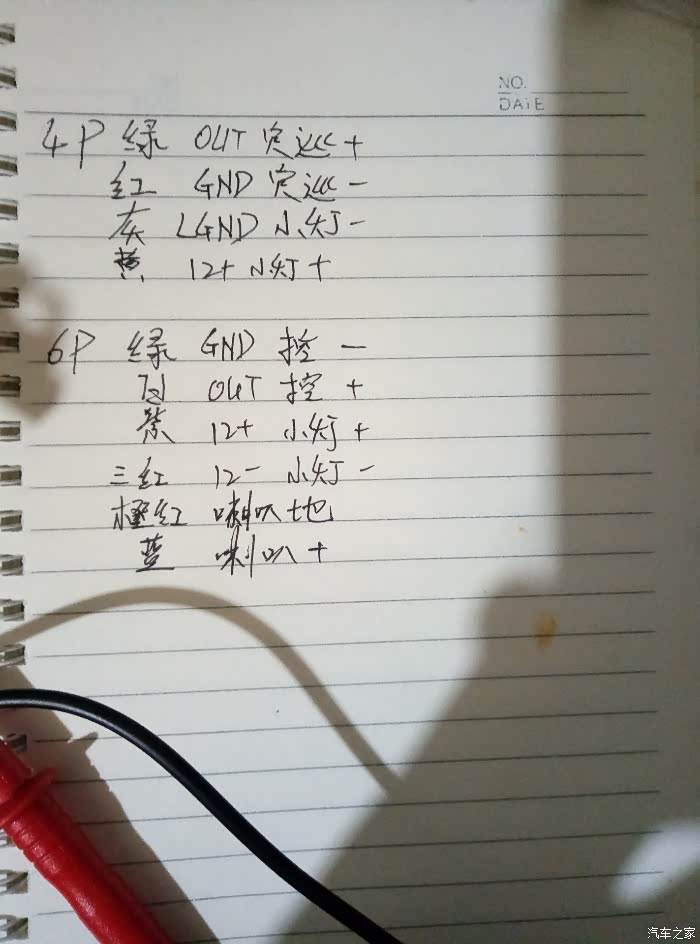 NO.
DAiE
4P 绿 OUT 定巡+
红 GND 定巡-
灰 LGND 小灯-
黄 12+ 小灯+
6P 绿 GND 控 -
OUT 控 +
紫 12+ 小灯+
三红 12- 小灯-
红 喇叭地
蓝 喇叭+
汽车之家